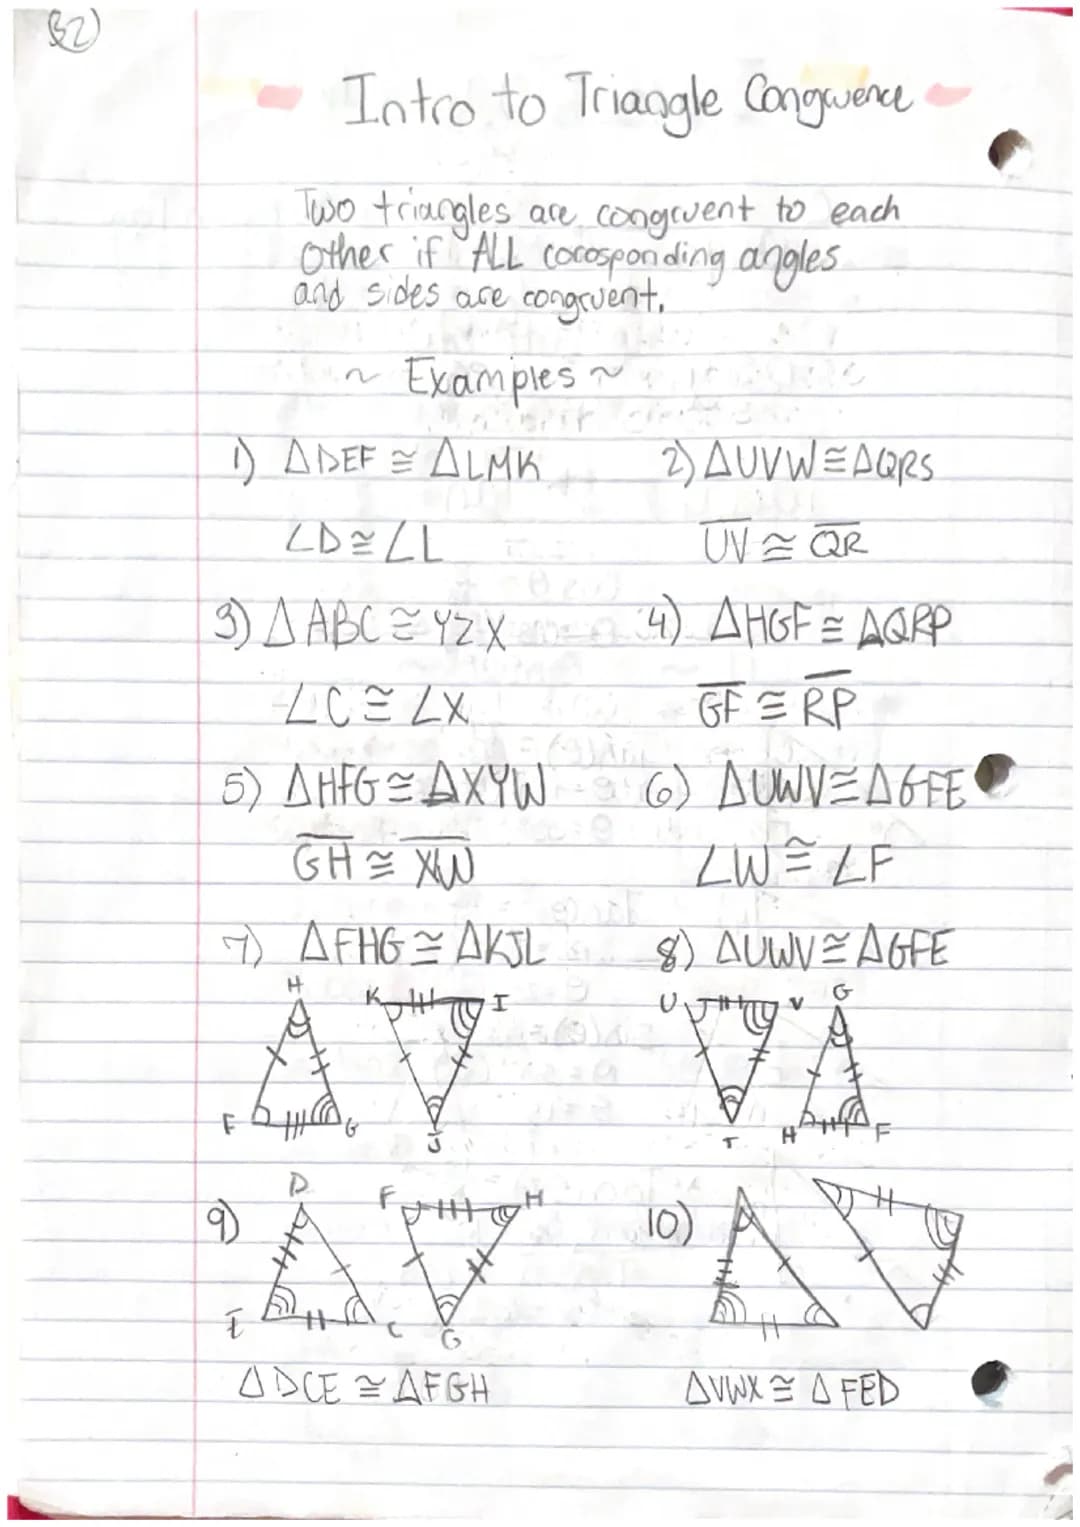 32)
Intro to Triangle Congruence
Two triangles are congruent to each
other if ALL corosponding angles
and sides are congruent.
~ Examples ~
1) △DEF ≅ △LMK
2) △UVW ≅ △QRS
∠D ≅ ∠L
UV ≅ QR
3) △ABC ≅ YZX
4) △HGF ≅ △QRP
∠C ≅ ∠X
GF ≅ RP
5) △HFG ≅ △XYW
6) △UWV ≅ △GFE
GH ≅ XW
∠W ≅ ∠F
7) △FHG ≅ △KJL
8) △UWV ≅ △GFE
H K I
U V G
F G J
T H F
9) D F H
10)
E C G
△DCE ≅ △FGH
△VWX ≅ △FED